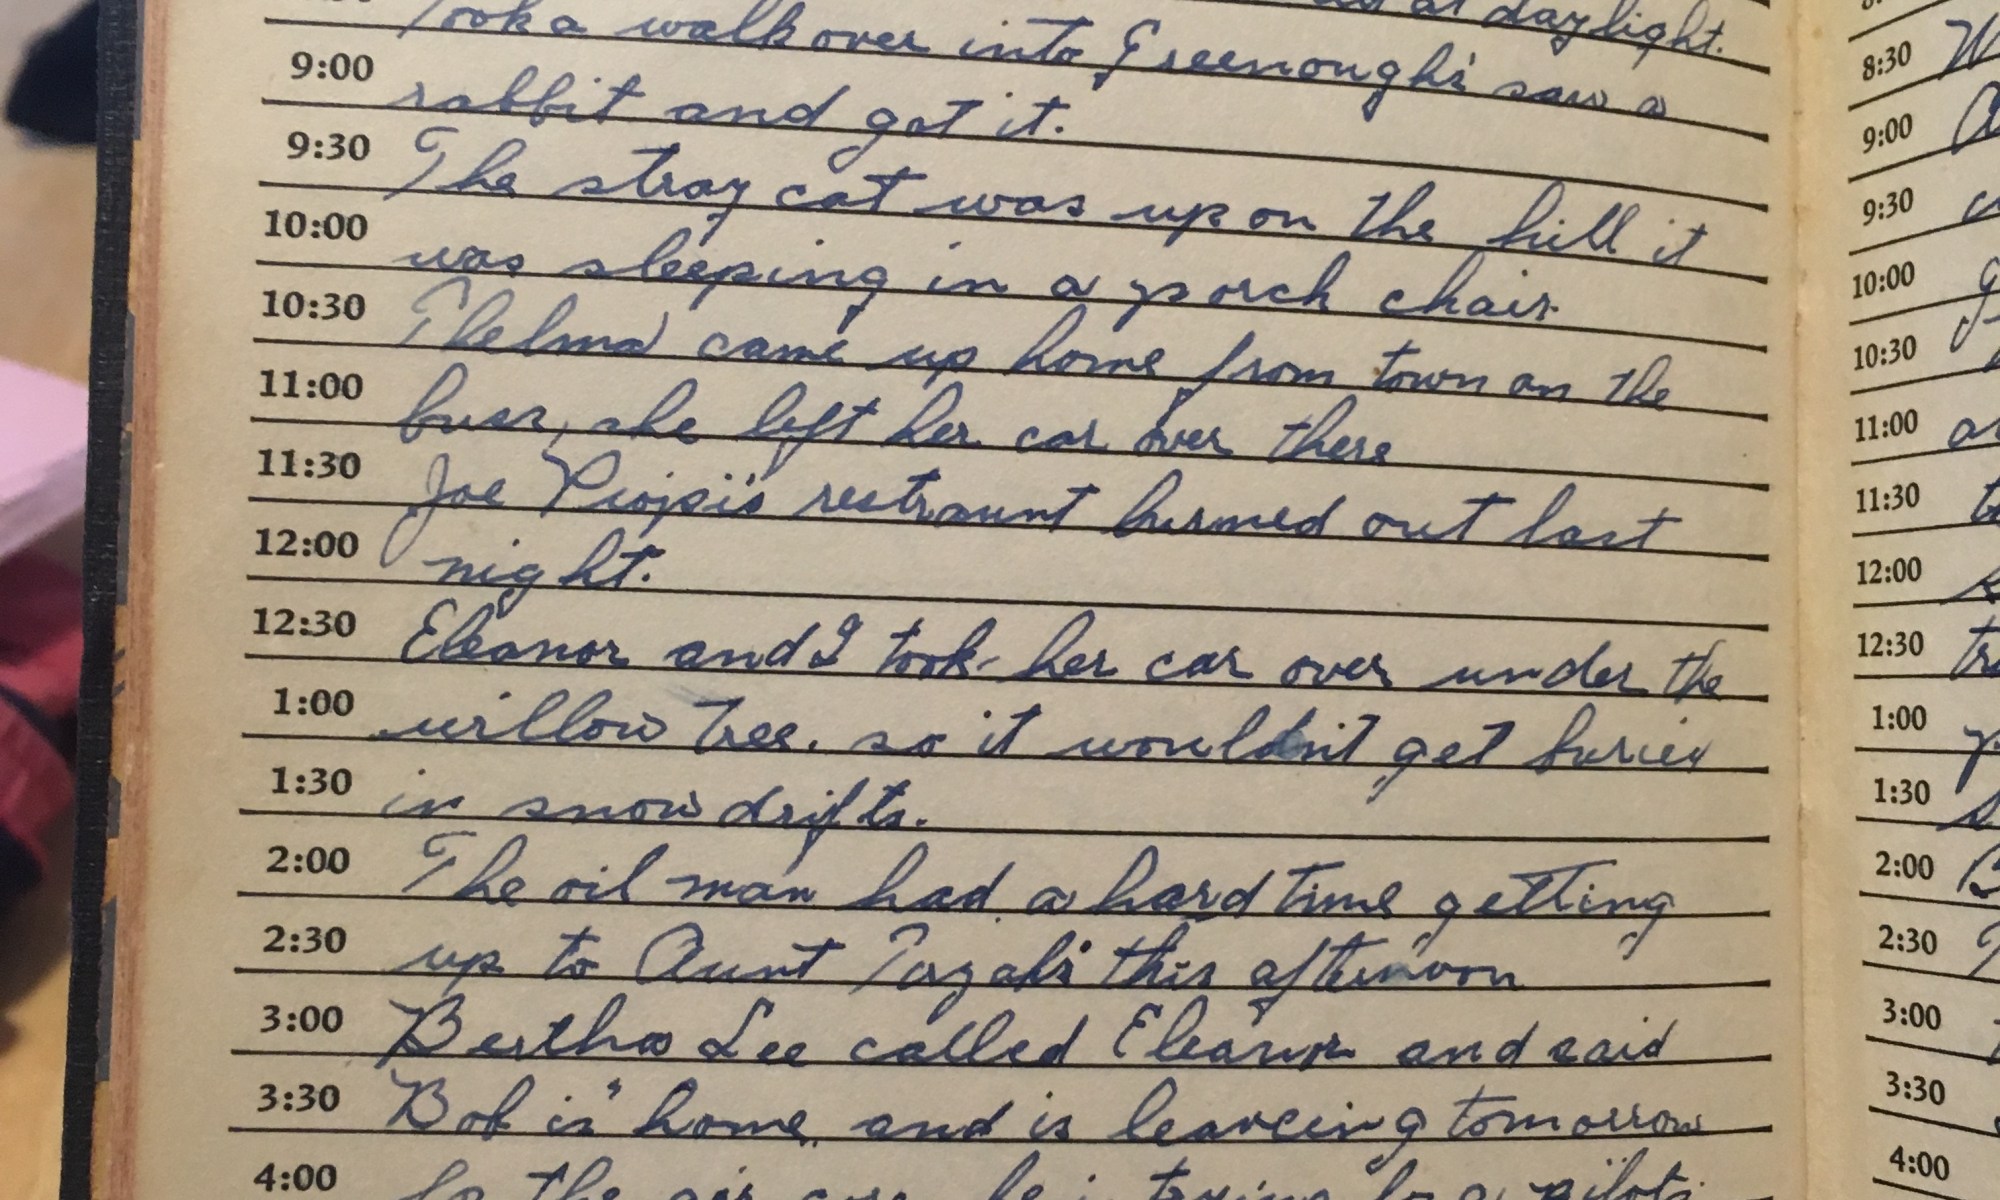 at daylight.
Took a walk over into Greenough's saw a
9:00 rabbit and got it.
9:30 The stray cat was up on the hill it
10:00 was sleeping in a porch chair.
10:30 Thelma came up home from town on the
11:00 buss, she left her car over there
11:30 Joe restraunt burned out last
12:00 night.
12:30 Eleanor and I took her car over under the
1:00 willow tree. so it wouldn't get buried
1:30 in snow drifts.
2:00 The oil man had a hard time getting
2:30 up to Aunt this afternoon
3:00 Bertha Lee called Eleanor and said
3:30 Bob is home and is leaveing tomorrow
4:00 the air
8:30
9:00
9:30
10:00
10:30
11:00
11:30
12:00
12:30
1:00
1:30
2:00
2:30
3:00
3:30
4:00